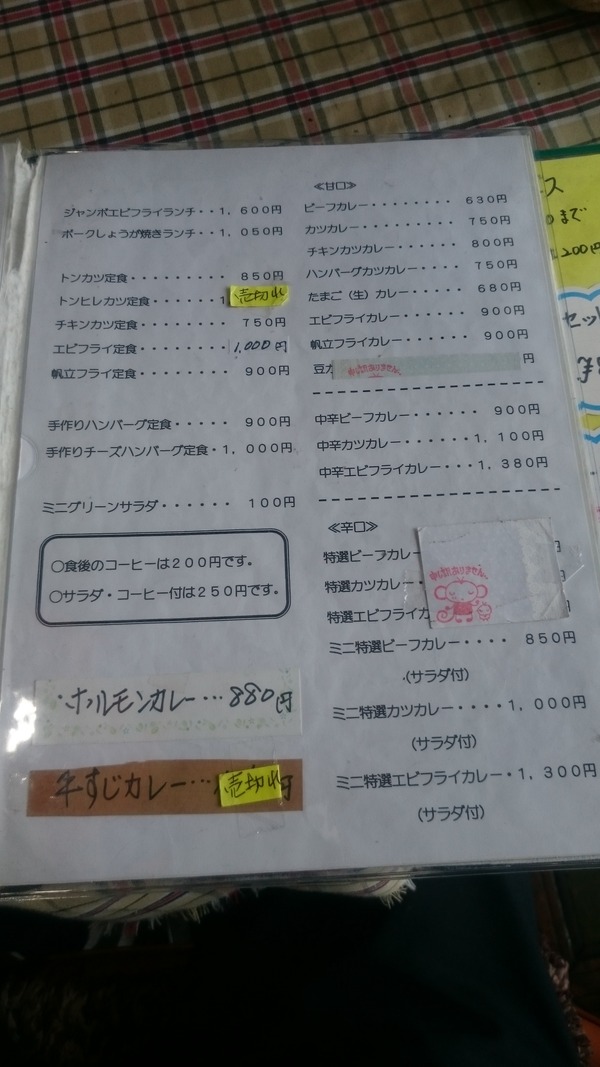 ジャンボエビフライランチ・・1，600円
ポークしょうが焼きランチ・・1，050円
トンカツ定食・・・・・・・・・ 850円
トンヒレカツ定食・・・・・1
売切れ
チキンカツ定食・・・・・・・ 750円
エビフライ定食・・・・・・・・1,000円
帆立フライ定食・・・・・・・ 900円
手作りハンバーグ定食・・・・・ 900円
手作りチーズハンバーグ定食・1，000円
ミニグリーンサラダ・・・・・・ 100円
○食後のコーヒーは200円です。
○サラダ・コーヒー付は250円です。
ホルモンカレー・・・880円
牛すじカレー・・・
売切れ
円
≪甘口≫
ビーフカレー・・・・・・・・・ 630円
カツカレー・・・・・・・・・ 750円
チキンカツカレー・・・・・・ 800円
ハンバーグカツカレー・・・・ 750円
たまご（生）カレー・・・・・ 680円
エビフライカレー・・・・・・ 900円
帆立フライカレー・・・・・・ 900円
豆
円
中辛ビーフカレー・・・・・・ 900円
中辛カツカレー・・・・・・1，100円
中辛エビフライカレー・・・1，380円
≪辛口≫
特選ビーフカレー
特選カツカレー・
特選エビフライカ
ミニ特選ビーフカレー・・・・ 850円
（サラダ付）
ミニ特選カツカレー・・・・1，000円
（サラダ付）
ミニ特選エビフライカレー・1，300円
（サラダ付）
ス
まで
200円
セット